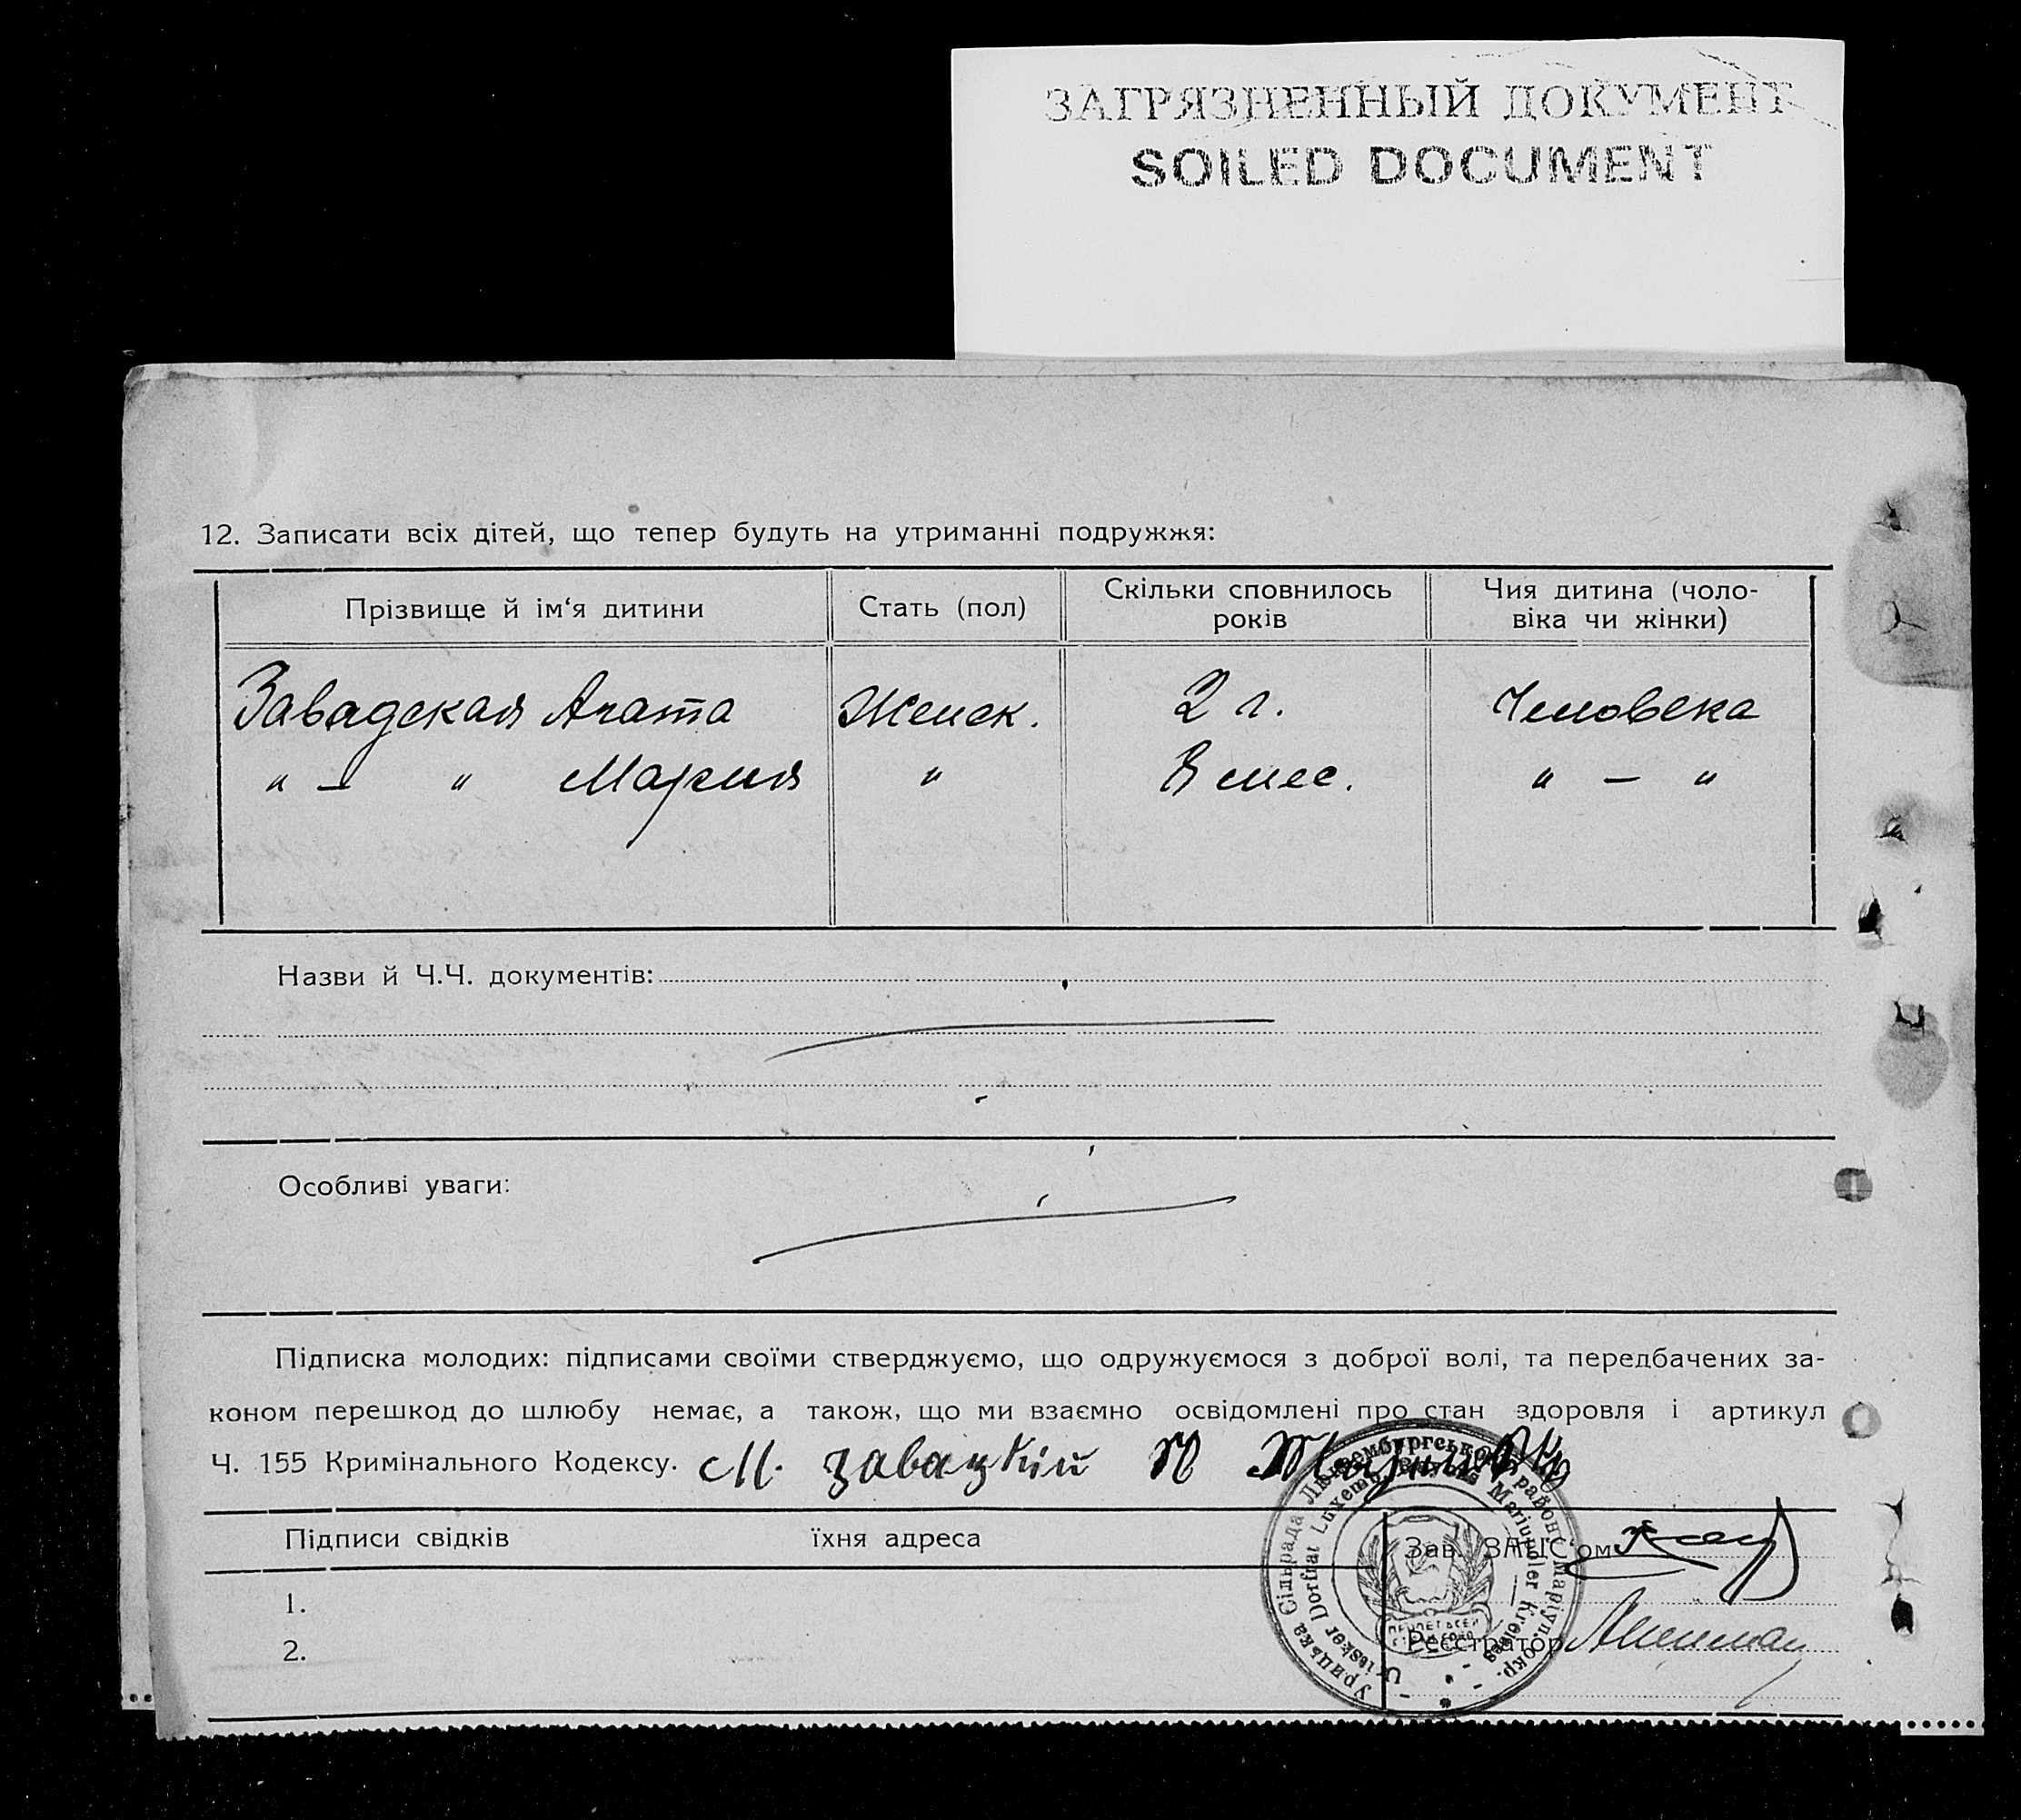 ЗАГРЯЗНЕННЫЙ ДОКУМЕНТ
SOILED DOCUMENT
12. Записати всіх дітей, що тепер будуть на утриманні подружжя:
Прізвище й ім‘я дитини Стать (пол) Скільки сповнилось років Чия дитина (чоло-віка чи жінки)
Завадская Агата Женск. 2 г. Человека
" — " Мария " 8 мес. " — "
Назви й Ч.Ч. документів:
Особливі уваги:
Підписка молодих: підписами своїми стверджуємо, що одружуємося з доброї волі, та передбачених за-
коном перешкод до шлюбу немає, а також, що ми взаємно освідомлені про стан здоровля і артикул
Ч. 155 Кримінального Кодексу. М. завацкій
Підписи свідків їхня адреса
Зав. ЗАГС‘ом
1.
Реєстратор
2.
Урицька Сільрада Люксембургського району Маріуп. окр.
Uritsker Dorfrat Luxemburg Rayons Mariupoler Kreises